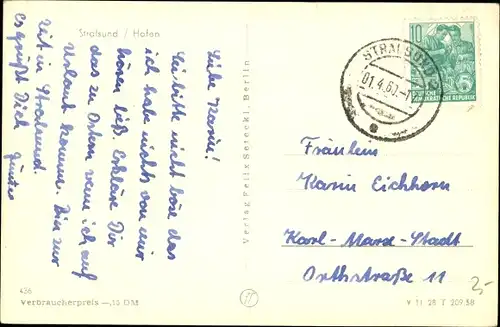 Stralsund / Hafen
Liebe Karin!
Sei bitte nicht böse das
ich habe nichts von mir
hören ließ. Erkläre Dir
das zu Ostern wenn ich auf
Urlaub komme. Bin zur
Zeit in Stralsund.
Es grüßt Dich
Günter
436
Verbraucherpreis —,15 DM
Verlag Felix Setecki, Berlin
STRALSUND
01.4.60.-1
10
5
DEUTSCHE
DEMOKRATISCHE REPUBLIK
Fräulein
Karin Eichhorn
Karl-Marx-Stadt
Orthstraße 11
25-
V 11 28 T 209 58